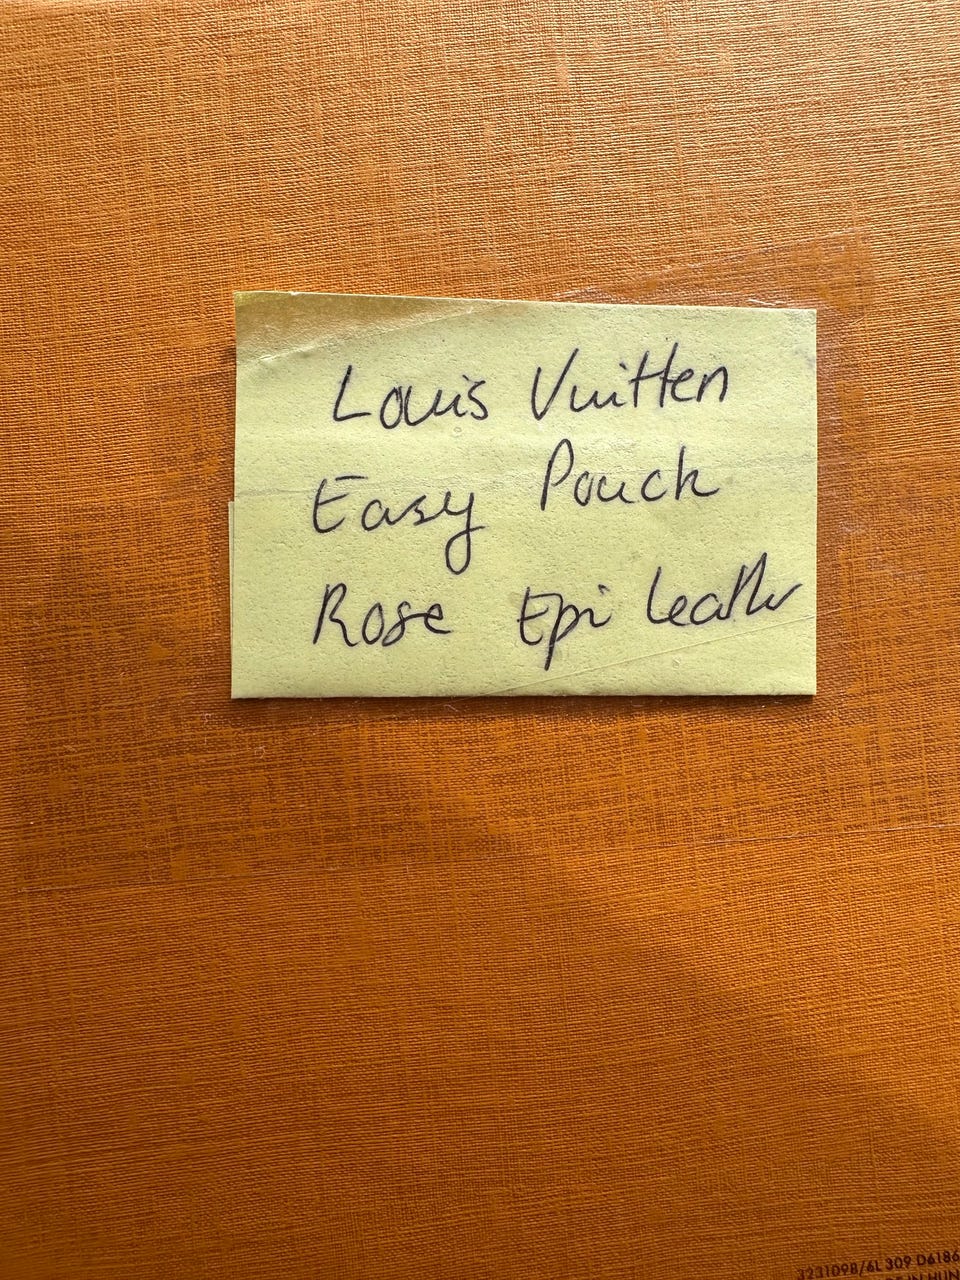 Louis Vuitten
Easy Pouch
Rose Epi leather
3231098/6L 309 D6186